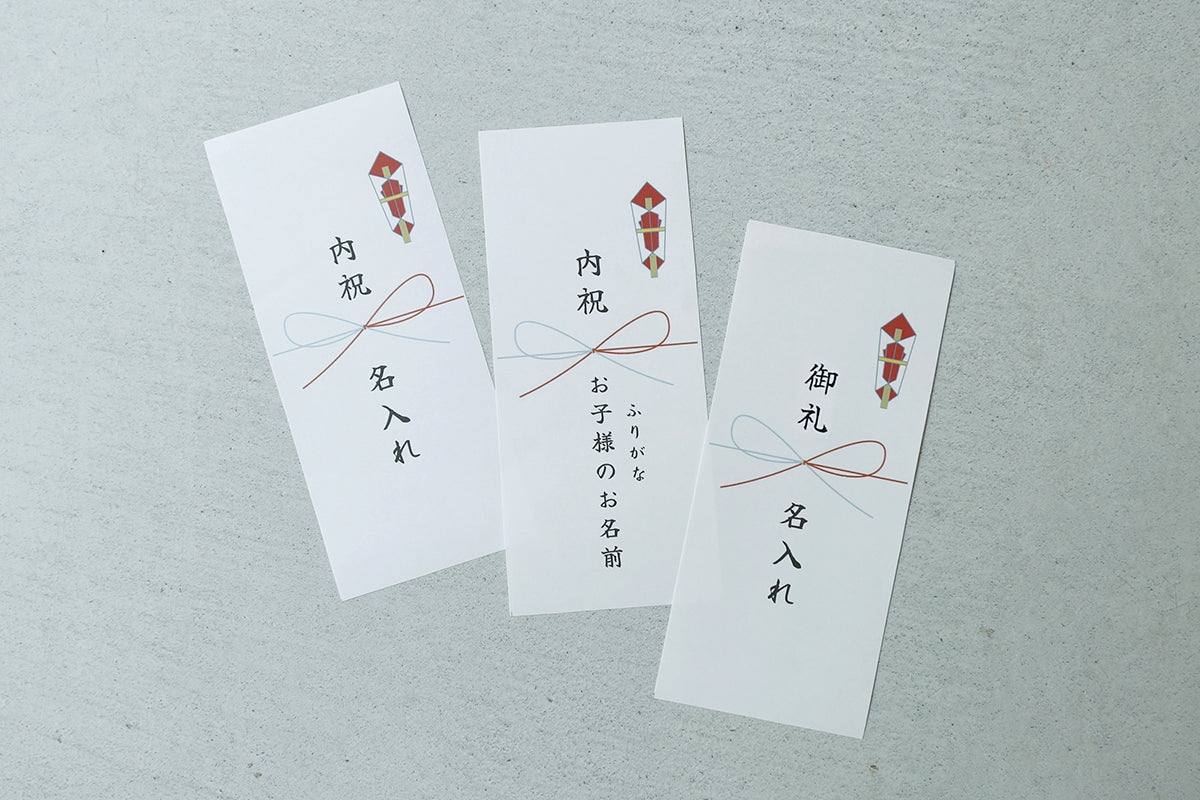 内祝
名入れ
内祝
ふりがな
お子様のお名前
御礼
名入れ